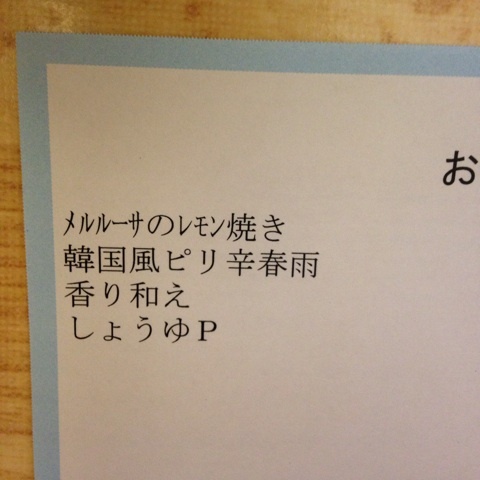 お
ﾒﾙﾙｰｻのﾚﾓﾝ焼き
韓国風ピリ辛春雨
香り和え
しょうゆＰ